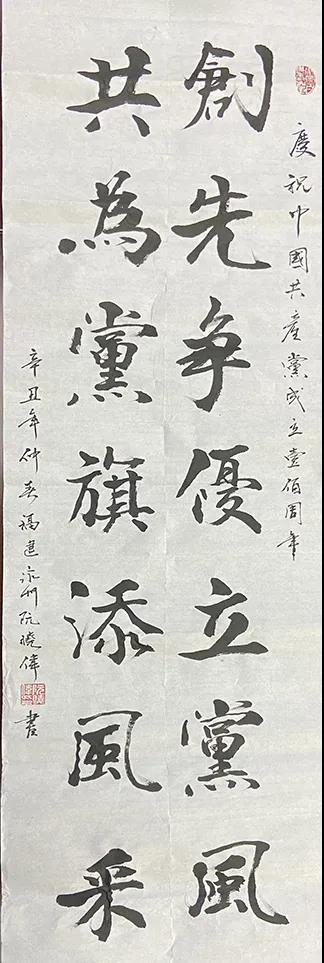 慶祝中國共產黨成立壹佰周年
創先争優立黨風
共為黨旗添風采
辛丑年仲春福建永州阮曉偉
書